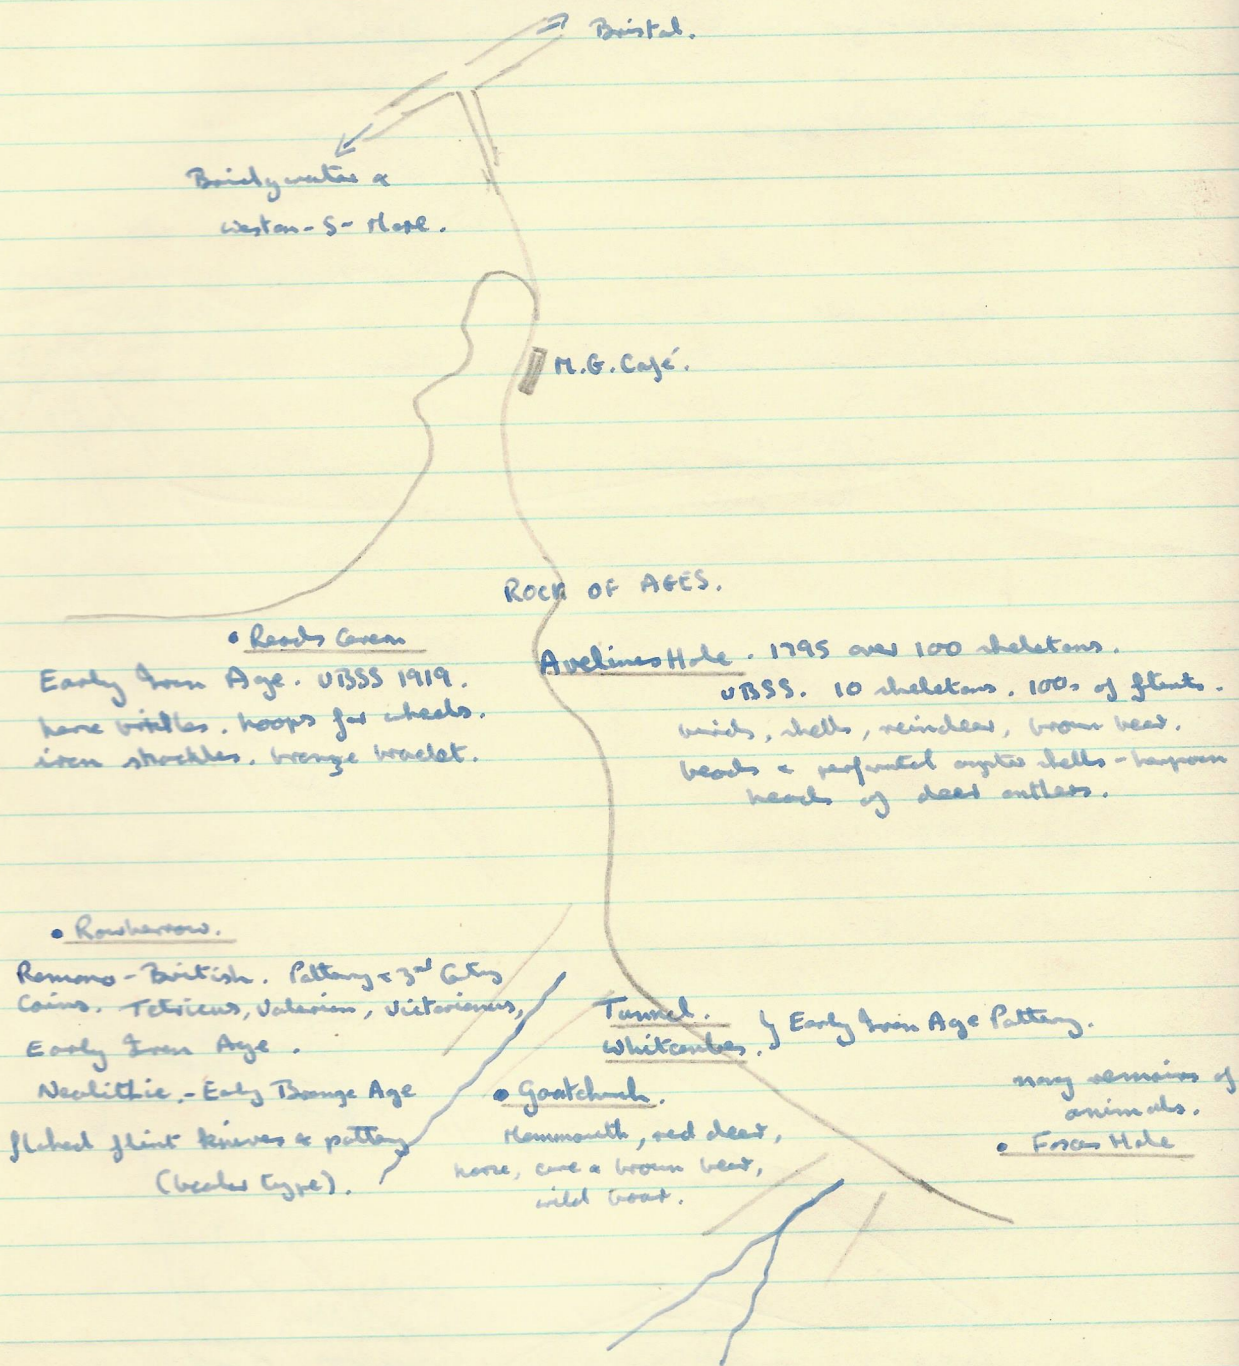 Bristol.
Bridgwater &
Weston-S-Mare.
M.G. Café.
ROCK OF AGES.
• Reads Cavern
Early Iron Age. UBSS 1919.
horse bridles. hoops for wheels.
iron shackles. bronze bracelet.
Avelines Hole. 1795 over 100 skeletons.
UBSS. 10 skeletons. 100s of flints.
birds, shells, reindeer, brown bear.
beads & perforated oyster shells - harpoon
heads of deer antlers.
• Rowberrow.
Romano-British. Pottery & 3rd
Coins. Tetricus, Valerian, Victorinus,
Early Iron Age.
Neolithic.- Early Bronze Age
flaked flint knives & pottery
(beaker type).
Tunnel.
Whitcombes. } Early Iron Age Pottery.
• Goatchurch.
Mammouth, red deer,
horse, cave & brown bear,
wild boar.
many remains of
animals.
• Foxes Hole